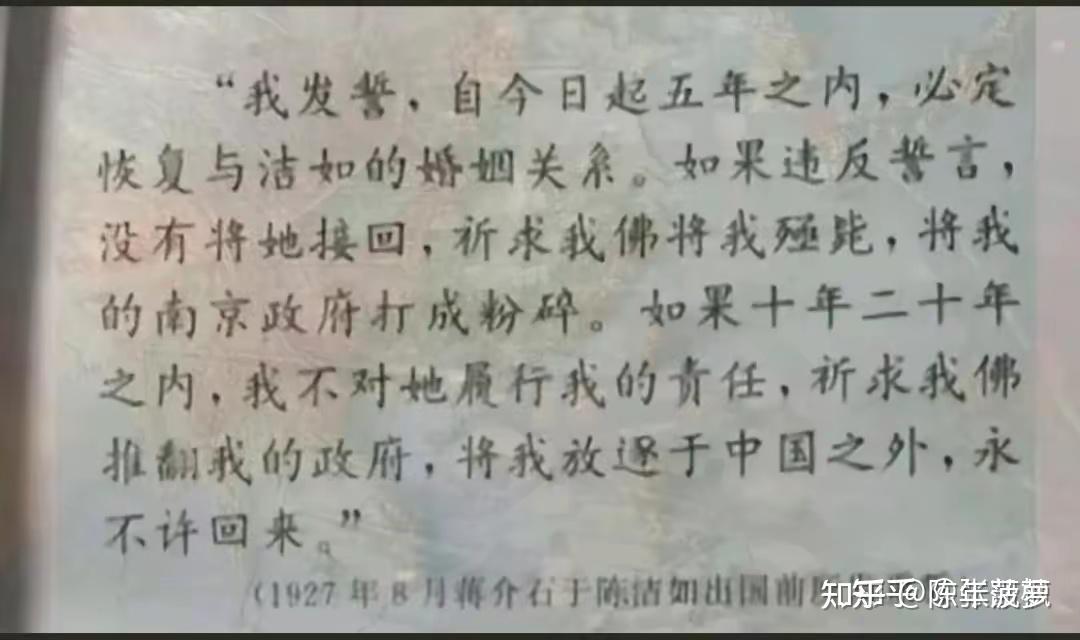 “我发誓，自今日起五年之内，必定
恢复与洁如的婚姻关系。如果违反誓言，
没有将她接回，祈求我佛将我殛毙，将我
的南京政府打成粉碎。如果十年二十年
之内，我不对她履行我的责任，祈求我佛
推翻我的政府，将我放逐于中国之外，永
不许回来。”
(1927年8月蒋介石于陈洁如出国前
知乎